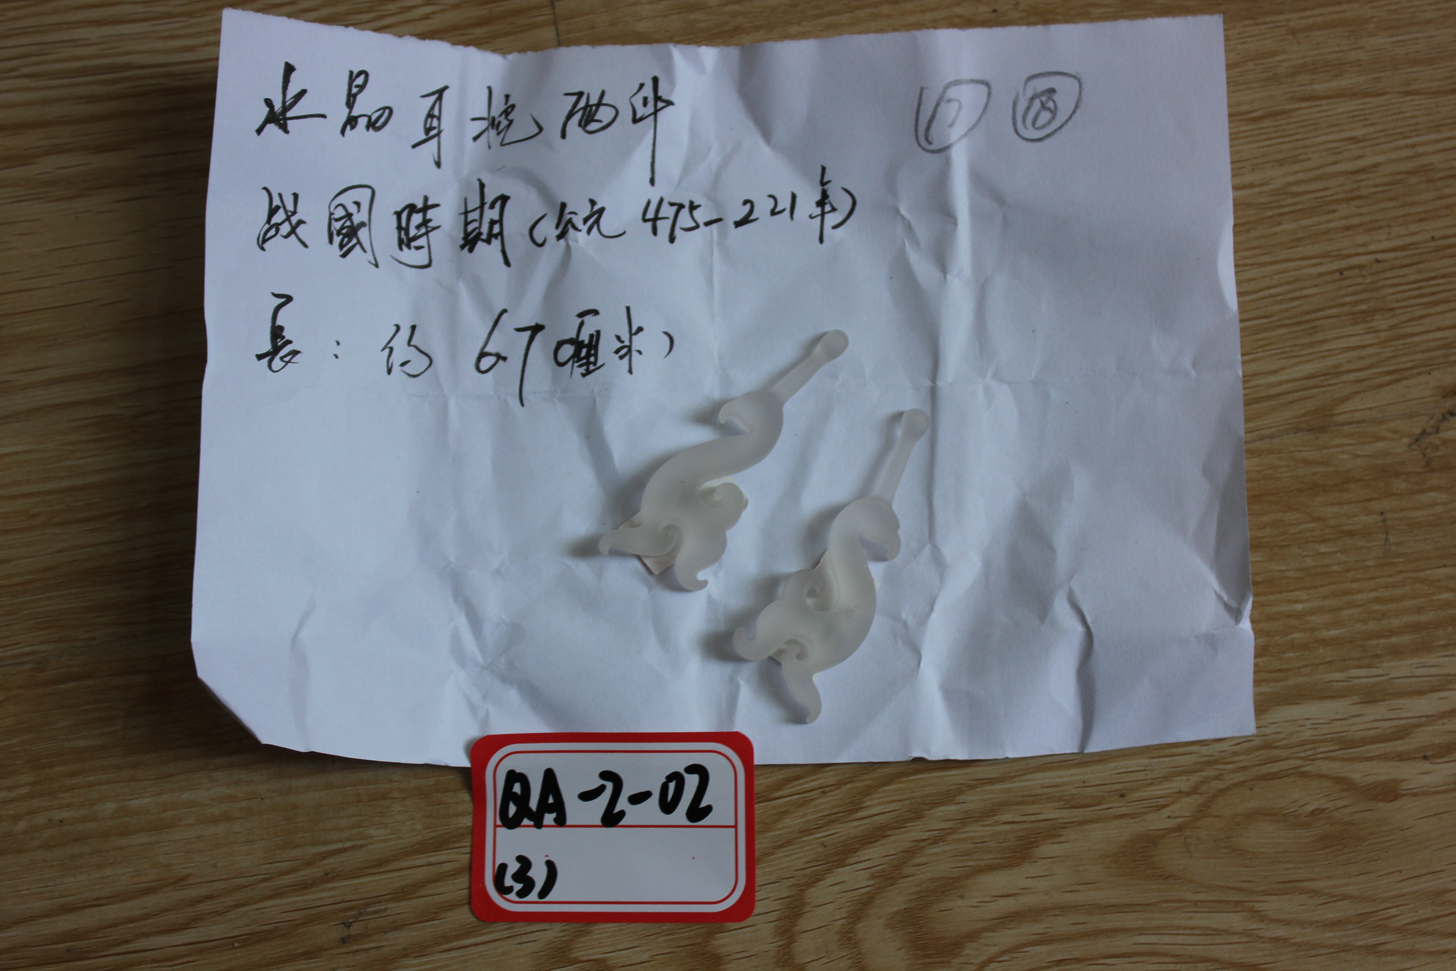 水晶耳挖两件 ⑰ ⑱
战國時期(公元475-221年)
長：约6.7(厘米)
QA-2-02
(3)